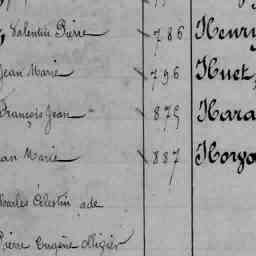 Valentin Pierre 786 Henry
Jean Marie 796 Huet
François Jean 879 Hara
Jean Marie 887 Horvo
Charles Célestin ade
Pierre Eugène Olizier